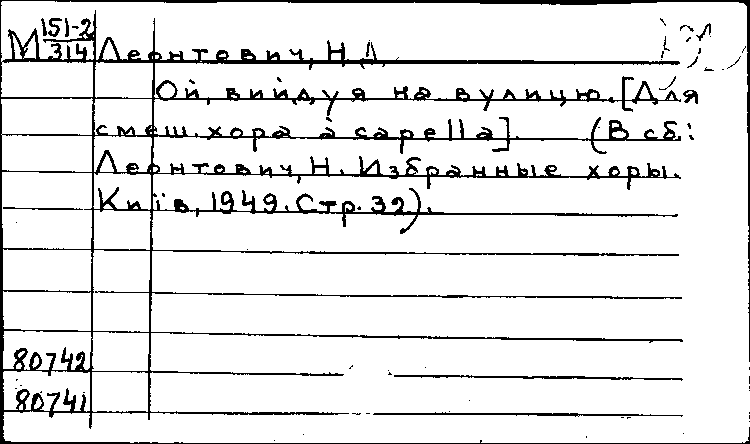 М 151-2
314 Леонтович, Н Д
Ой, вийду я на вулицю. [Для
смеш. хора à capella]. (В сб.:
Леонтович, Н. Избранные хоры.
Київ, 1949. Стр. 32).
80742
80741